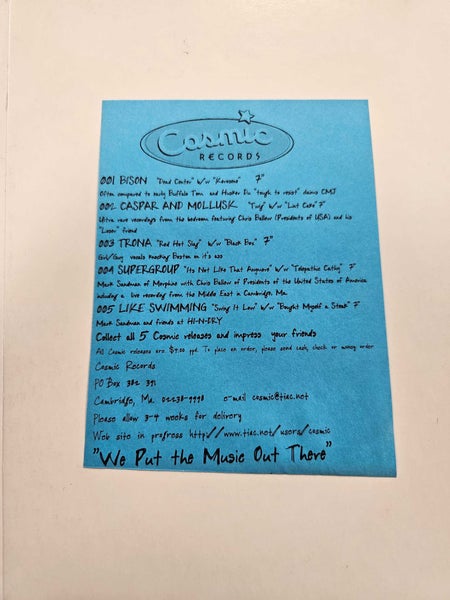 Cosmic
RECORDS
001 BISON "Dead Center" w/w "Kerosene" 7"
Often compared to early Buffalo Tom and Husker Du "tough to resist" claims CMJ
002 CASPAR AND MOLLUSK "Twig" w/w "Lint Cake" 7"
Ultra rare recordings from the bedroom featuring Chris Ballew (Presidents of USA) and his
"Loser" friend
003 TRONA "Red Hot Slag" w/w "Black Box" 7"
Girl/Guy vocals knocking Boston on it's ass
004 SUPERGROUP "Its Not Like That Anymore" w/w "Telepathic Cathy" 7"
Mark Sandman of Morphine with Chris Ballew of Presidents of the United States of America
including a live recording from the Middle East in Cambridge, Ma.
005 LIKE SWIMMING "Swing It Low" w/w "Bought Myself a Steak" 7"
Mark Sandman and friends at HI-N-DRY
Collect all 5 Cosmic releases and impress your friends
All Cosmic releases are $4.00 ppd. To place an order, please send cash, check or money order
Cosmic Records
PO Box 382 391
Cambridge, Ma 02238-9998 e-mail cosmic@tiac.net
Please allow 3-4 weeks for delivery
Web site in progress http://www.tiac.net/users/cosmic
"We Put the Music Out There"